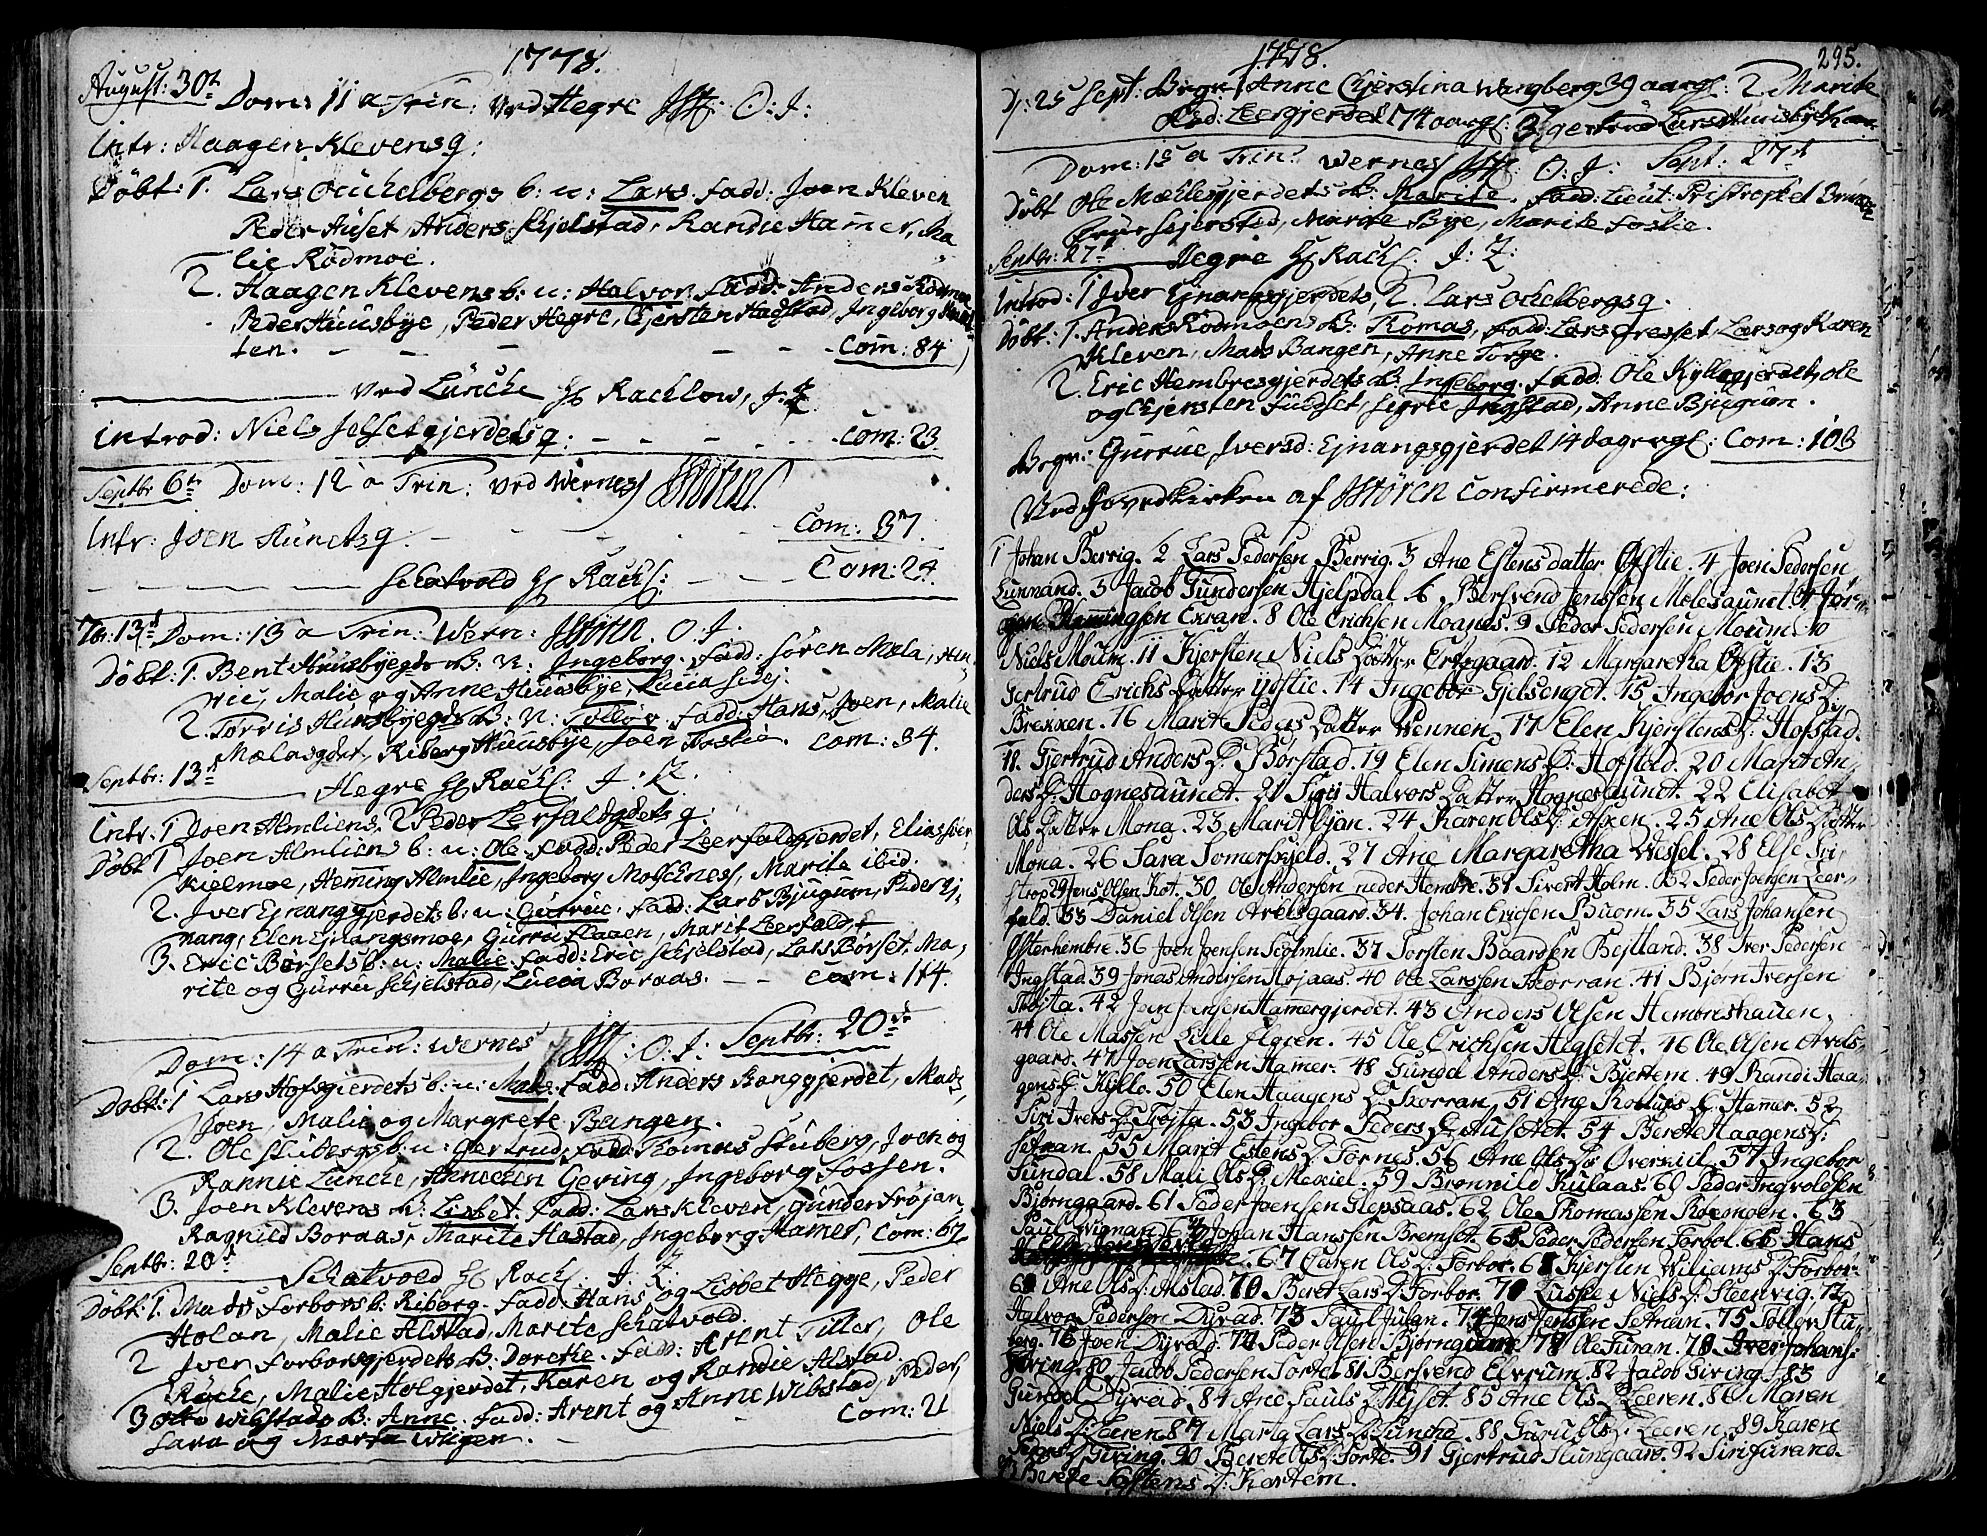 1778.
August: 30te Dom: 11 a Trin: ved Hegre JStr: O: J:
Intr: Haagen Klevens q:
Döbt: 1. Lars Ouchelbergs b: n: Lars. fadd: Joen Kleven
Peder Huset, Anders Skjelstad, Randie Hamer, Ma
lie Rödmoe.
2. Haagen Klevens b: n: Halvor. fadd: Anders Rödmoe
Peder Huusbye, Peder Hegre, Kjersten Hadstad, Ingeborg
ten. Com: 84
ved Lünche H Rachlow, J. Z.
Introd: Niels Selsetgjerdets q: Com: 23
Septbr 6te Dom: 12 a Trin: ved Wernes JStören
Intr: Joen Hünets q. Com: 37.
Schatvold H Rach: Com: 24.
7br: 13d Dom: 13 a Trin: Wern: JStören. O. J.
Döbt: 1. Bent Huusbyegds B: N: Ingeborg. fadd: Sören Mæla, Hen
ric, Malie og Anne Huusbye, Lucia
2. Torris Huusbyegds B: N: Tolløv. fadd: Hans, Joen, Malie
Mælasgdet, Riborg Huusbye, Joen Foslie. Com: 34.
Septbr: 13d Hegre H Rach: J: Z.
Intr. 1 Joen Almliens, 2 Peder Leerfaldgdets q.
Döbt 1 Joen Almliens b: n: Ole. fadd: Peder Leerfaldgjerdet, Elias
Kielmoe, Hemming Almlie, Ingeborg Moschnes, Marite ibid.
2. Iver Ejnangsgjerdets b: n: Gurrue. fadd: Lars Bjugum, Peder Ej,
nang, Elen Ejnangsmoe, Gurru Haagen, Marit Leerfald.
3. Eric Borsets b: n: Malie. fadd: Eric Skjelstad, Lars Börset, Ma,
rite og Gurru Skjelstad, Lucia Boraas. Com: 114.
Dom: 14 a Trin: Wernes JStr: O. J. Septbr: 20de
Döbt: 1 Lars Hofsgierdets b: n: fadd: Anders Banggjerdet, Mads,
Joen, Malie og Margrete Bangen.
2. Ole Stubergs b: n: Gertrud. fadd: Thomas Stuberg, Joen og
Rannie Lunche, Annichen Geving, Ingeborg Fossen.
3. Joen Klevens B: Lisbet. fadd: Lars Kleven, Gunder Frøjan,
Ragnild Boraas, Marite Hastad, Ingeborg Hamer, Com: 67.
Septbr: 20d Schatvold H Rach: J. Z.
Döbt: 1. Mads Forbors b: Riborg. fadd: Hans og Lisbet Hegge, Peder
Holan, Malie Alstad, Marite Schatvold.
2 Iver Forborsgjerdets B: Dorethe. fadd: Arent Tiller, Ole
Röche, Malie Holgjerdet, Karen og Randie Alstad
3 Otto Wibstads B: Anne. fadd: Arent og Anne Wibstad, Peder,
Sara og Marta Wigen. Com: 21
1778. 295.
D: 25 Sept: Begr: 1 Anne Chjerstina Wangberg 39 aar gl: 2 Marite
Leergjerdet 74 aar gl: 3 Gertrud Lars Huusbye
Dom: 15 a Trin: Wernes JStr: O. J: Sept: 27d
Döbt Ole Mæhlesgjerdets B: Marite. fadd: Lieut:
Frue Sejersted, Marite Bye, Marite Foslie.
Septbr: 27d Hegre H Rach: J: Z:
Introd: 1 Iver Ejnangsgjerdets, 2. Lars Ochelbergs q.
Döbt: 1. Anders Rödmoens B: Tomas, fadd: Lars Gresset, Lars og Karen
Kleven, Mads Bangen, Anne Torge.
2. Eric Hembresgjerdets B: Ingeborg. fadd: Ole Kyllogjerdet, Ole
og Chjersten Fuldset, Sigrie Ingstad, Anne Bjugum.
Begr: Gurrue Iversd: Ejnangsgjerdet 14 dager gl: Com: 103
Ved Hovedkirken af JStören Confirmerede:
1 Johan Berrig. 2 Lars Pedersen Berrig. 3 Ane Estensdatter Øfstie. 4 Joen Pedersen
Lunnand. 5 Jacob Gundersen Hjelpdal 6. Bersvend Jenssen Molesaunet. 7
Hemmingsen Exran. 8 Ole Erichsen Moanes. 9 Peder Pedersen Moum 10
Niels Moum. 11 Kjersten Niels Datter Ertsgaard. 12 Margaretha Øfstie. 13
Gertrud Erichs Datter Øfstie. 14 Ingebor Gjelsenget. 15 Ingebor Joens D:
Brexxen. 16 Marit Peders Datter Wennen. 17 Elen Kjerstens D: Hofstad.
18. Gjertrud Anders D: Börstad. 19 Elen Simens D: Hofstad. 20 Marit An,
ders D: Hognesaunet. 21 Siri Halvors Datter Hognesaunet. 22 Elisabet
Ols Datter Mona. 23 Marit Bjan. 24 Karen Ols D: Axen. 25 Ane Ols Datter
Mona. 26 Sara Somerskjeld. 27 Ane Margaretha Wessel. 28 Else Tri,
strop 29 Jens Olsen Kot. 30 Ole Andersen neder Hembre. 31 Sivert Holm. 32 Peder Joensen Leer,
fald. 33 Daniel Olsen Avelsgaard. 34. Johan Ericsen Buom. 35 Lars Johansen
Østerhembre. 36 Joen Joensen Teglmlie. 37 Torsten Baardsen Bestland. 38 Iver Pedersen
Ingstad. 39 Jonas Andersen Hojaas. 40 Ole Larssen Skorran. 41 Bjørn Iversen
Trøjta. 42 Joen Joensen Hamergjerdet. 43 Anders Olsen Hembreshauen.
44 Ole Massen Lille Flgren. 45 Ole Erichsen Hegsetet. 46 Ole Olsen Avels-
gaars. 47 Joen Larssen Hamer. 48 Gunda Anders D: Bjertem. 49 Randi Haa-
gens D: Kyllo. 50 Elen Haagens D: Skorran. 51 Ane Rolluss D: Hamer. 52
Siri Ivers D: Trøjta. 53 Ingebor Peders D: Ausetet. 54 Berete Haagens D:
Setnan. 55 Marit Estens D: Fornes. 56 Ane Ols D: Overkiil. 57 Ingebor
Sundal. 58 Mali Ols D: Mexiel. 59 Brønnild Kulaas. 60 Peder Ingvoldsen
Bjorngaard. 61 Peder Joensen Slepsaas. 62 Ole Thomassen Roesmoen. 63
Paul Wignan. 64 Johan Hanssen Bremset. 65 Peder Pedersen Forbol. 66 Hans
67 Caren Ols D: Forbor. 68 Kjersten Wiliams D: Forbor.
69 Ane Ols D: Alstad. 70 Beret Lars D: Forbor. 71 Luspe Niels D: Steenvig. 72
Halvor Pedersen Dyvad. 73 Paul Julan. 74 Jens Jenssen Setnan. 75 Tolløv Stu-
berg. 76 Joen Dyvad. 77 Peder Olsen Bjørngaard 78 Ole Furan. 79 Iver Johans:
Giving. 80 Jacob Pedersen Forte. 81 Bersvend Elvrum. 82 Jacob Giving. 83
Gundel Dyvad. 84 Ane Pauls D: Wesset. 85 Ane Ols D: Leeren. 86 Maren
Niels D: Leeren. 87 Marta Lars D: Lunche. 88 Guru Ols D: Leeren. 89 Karen
Peders D: Giving. 90 Berete Ols D: Forte. 91 Gjertrud Slungaard. 92 Siri Furand.
93 Berete Tostens D: Kartem.